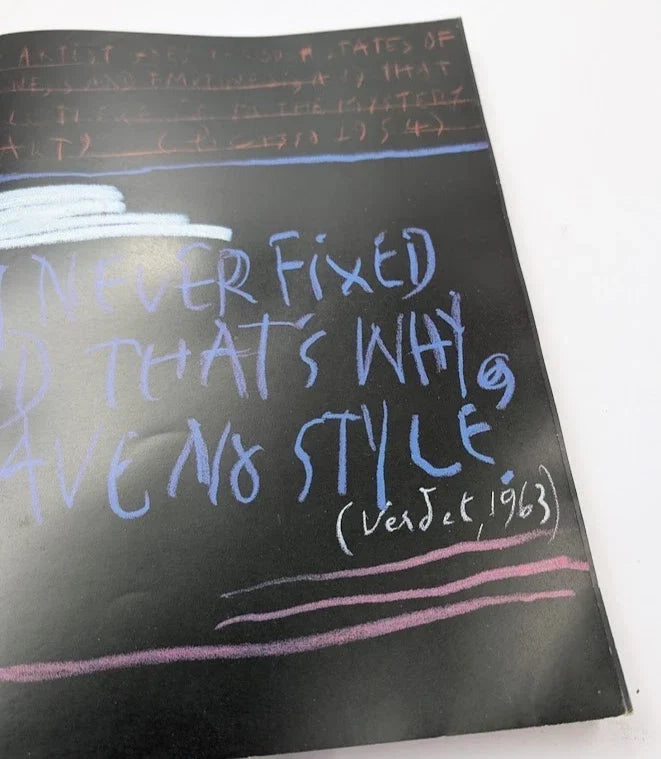 ARTIST STATES OF
NESS AND EMPTINESS, THAT
THERE IS TO THE MYSTERY
ART) 1954)
NEVER FIXED
D THAT'S WHY,
AVE NO STYLE.
(Verdet, 1963)